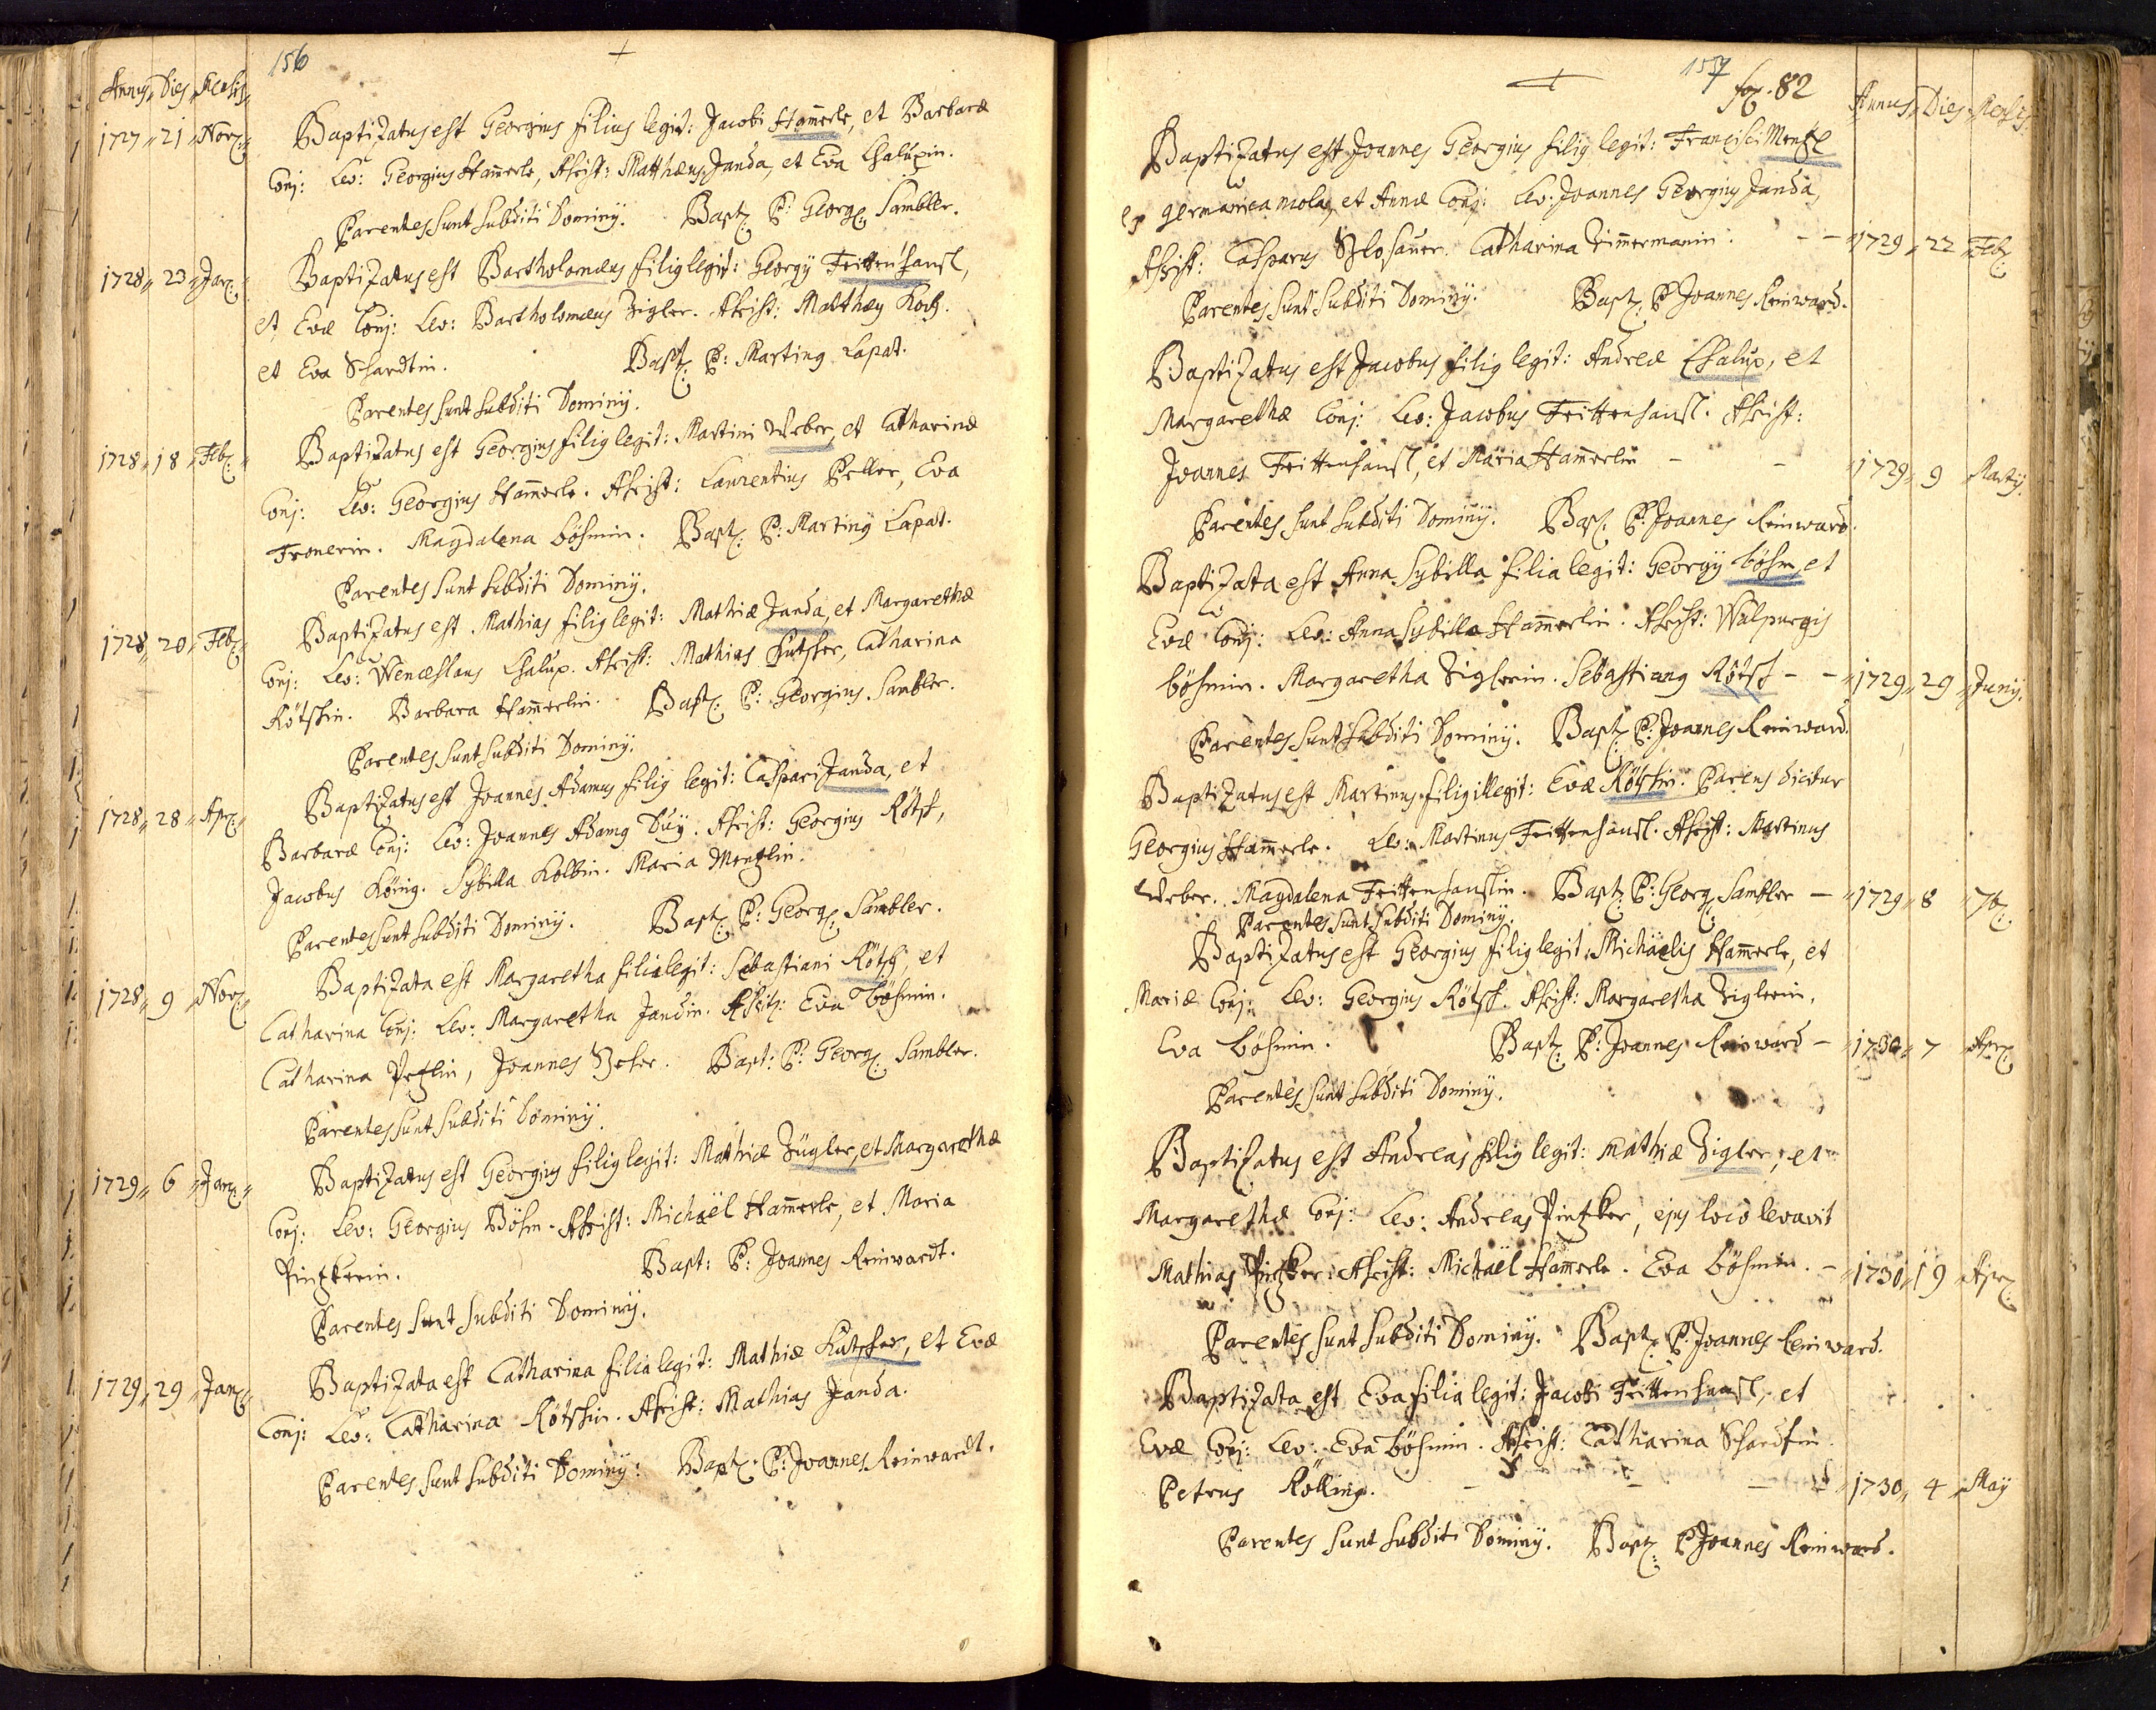 156
Annus, Dies, Mensis,
1727,, 21,, Nov:
Baptizatus est Georgius filius legit: Jacobi Hamerle, et Barbaræ
Conj: Lev: Georgius Hamerle, Assist: Matthæus Janda, et Eva Chalupin.
Parentes sunt subditi Dominÿ. Bapt: P: Georg: Sambler.
1728,, 23,, Jan:
Baptizatus est Bartholomæus filig legit: Georgÿ Frittenhansl,
et Evæ Conj: Lev: Bartholomæus Zigler. Assist: Matthæg Koch.
et Eva Schardtin. Bapt: P: Marting Lapat.
Parentes sunt subditi Dominÿ.
1728,, 18,, Feb:
Baptizatus est Georgius filig legit: Martini Weber, et Catharinæ
Conj: Lev: Georgius Hamerle. Assist: Laurentius Peller, Eva
Fronerin. Magdalena böhmin. Bapt: P: Marting Lapat.
Parentes sunt subditi Dominÿ.
1728,, 20,, Feb:
Baptizatus est Mathias filig legit: Mathiæ Janda, et Margarethæ
Conj: Lev: Wenceslaus Chalup. Assist: Mathias Kutscher, Catharina
Rötschin. Barbara Hamerlin. Bapt: P: Georgius Sambler.
Parentes sunt subditi Dominÿ.
1728,, 28,, Apr:
Baptizatus est Joannes Adamus filig legit: Caspari Janda, et
Barbaræ Conj: Lev: Joannes Adamg Duÿ. Assist: Georgius Rötsch,
Jacobus König. Sybilla Kolbin. Maria Mentzlin.
Parentes sunt subditi Dominÿ. Bapt: P: Georg: Sambler.
1728,, 9,, Nov:
Baptizata est Margaretha filia legit: Sebastiani Rötsch, et
Catharina Conj: Lev: Margaretha Jandin. Assist: Eva Böhmin.
Catharina Petzlin, Joannes. Bapt: P: Georg: Sambler.
Parentes sunt subditi Dominÿ.
1729,, 6,, Jan:
Baptizatus est Georgius filig legit: Mathiæ Zügler, et Margarethæ
Conj: Lev: Georgius Böhm. Assist: Michaël Hamerle, et Maria
Pintzkerin. Bapt: P: Joannes Reinwardt.
Parentes sunt subditi Dominÿ.
1729,, 29,, Jan:
Baptizata est Catharina filia legit: Mathiæ Kutscher, et Evæ
Conj: Lev: Catharina Rötschin. Assist: Mathias Janda.
Parentes sunt subditi Dominÿ: Bapt: P: Joannes Reinwardt.
157
fog. 82
Annus, Dies, Mensis
Baptizatus est Joannes Georgius filig legit: Francisci Mentzl
ex germanica mola, et Annæ Conj: Lev: Joannes Georgius Janda,
Assist: Casparus Schlosauer. Catharina Zimmermanin. - - 1729,, 22 Feb:
Parentes sunt subditi Dominÿ. Bapt: P Joannes Reinward.
Baptizatus est Jacobus filig legit: Andreæ Chalup, et
Margarethæ Conj: Lev: Jacobus Frittenhansl. Assist:
Joannes Frittenhansl, et Maria Hamerlin - - 1729,, 9 Martÿ.
Parentes sunt subditi Dominÿ. Bapt: P: Joannes Reinward.
Baptizata est Anna Sybilla filia legit: Georgÿ böhm, et
Evæ Conj: Lev: Anna Sybilla Hamerlin. Assist: Walpurgis
böhmin. Margaretha Ziglerin. Sebastiang Rötsch - - 1729,, 29,, Junÿ.
Parentes sunt subditi Dominÿ. Bapt: P: Joannes Reinward.
Baptizatus est Martinus filig illegit: Evæ Rötschin. Parens dicitur
Georgius Hamerle. Lev: Martinus Frittenhansl. Assist: Martinus
Weber. Magdalena Frittenhanslin. Bapt: P: Georg: Sambler - 1729,, 8 7b:
Parentes sunt subditi Dominÿ.
Baptizatus est Georgius filig legit: Michäelis Hamerle, et
Mariæ Conj: Lev: Georgius Rötsch. Assist: Margaretha Ziglerin,
Eva böhmin. Bapt: P: Joannes Reinward - 1730,, 7 Apr:
Parentes sunt subditi Dominÿ.
Baptizatus est Andreas filig legit: Mathiæ Zigler, et
Margarethæ Conj: Lev: Andreas Pintzker, ejus loco levavit
Mathias Pintzker. Assist: Michaël Hamerle. Eva böhmin. - 1730,, 19 Apr:
Parentes sunt subditi Dominÿ. Bapt: P. Joannes Reinward.
Baptizata est Eva filia legit: Jacobi Frittenhansl, et
Evæ Conj: Lev: Eva böhmin. Assist: Catharina Schardtin.
Petrus Rölling. - - - 1730,, 4,, Maÿ
Parentes sunt subditi Dominÿ. Bapt: P Joannes Reinward.